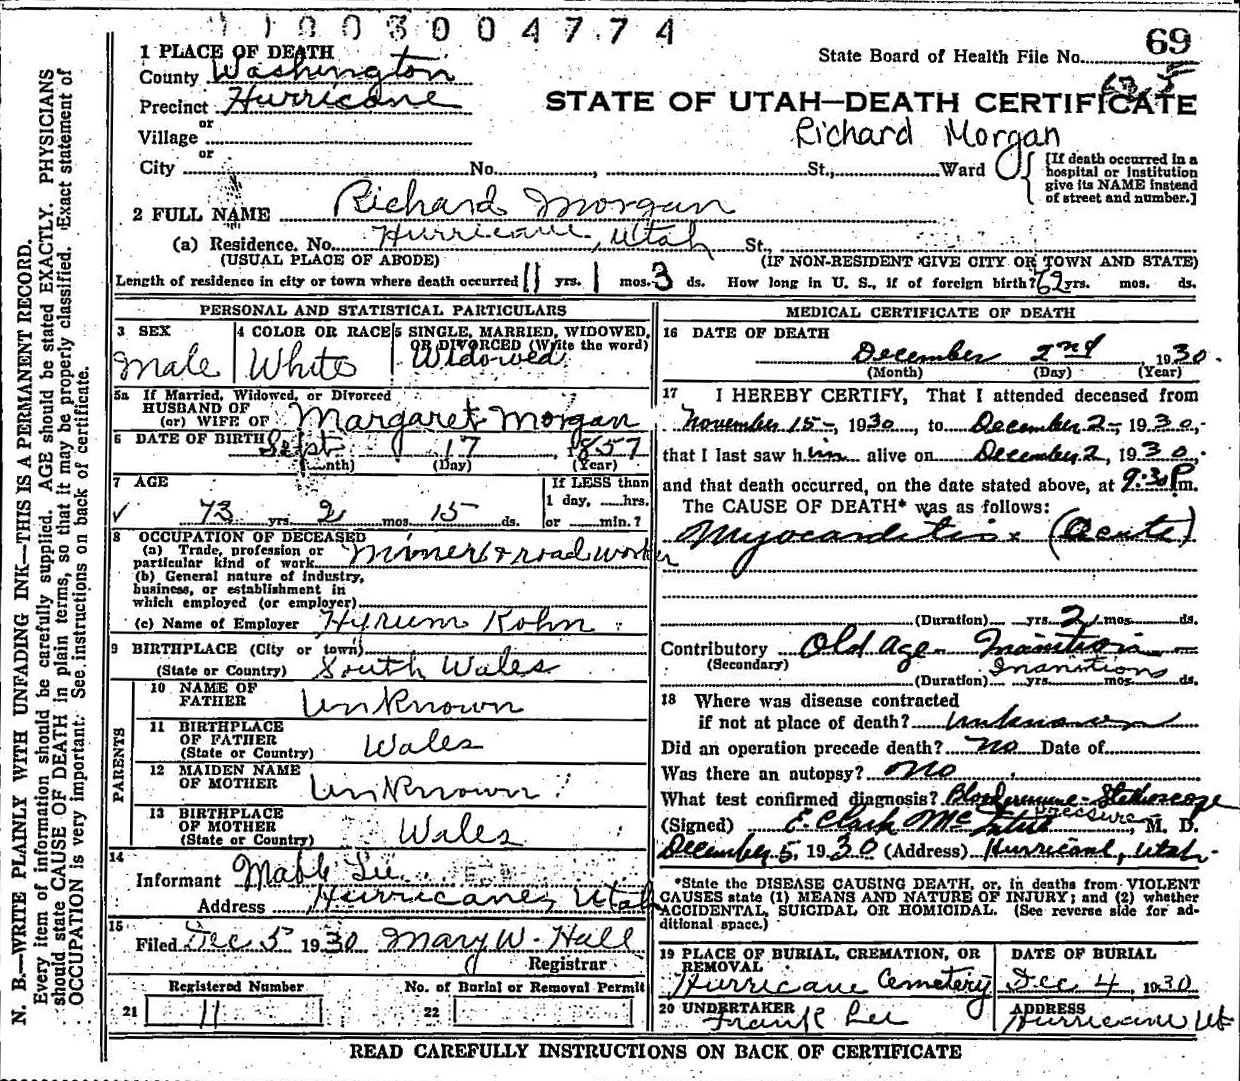 11003004774
69
State Board of Health File No.
1 PLACE OF DEATH
County Washington
Precinct Hurricane
or
Village
or
City No. , St., Ward
STATE OF UTAH—DEATH CERTIFICATE
Richard Morgan
[If death occurred in a hospital or institution give its NAME instead of street and number.]
2 FULL NAME Richard Morgan
(a) Residence. No. Hurricane, Utah St.,
(USUAL PLACE OF ABODE) (IF NON-RESIDENT GIVE CITY OR TOWN AND STATE)
Length of residence in city or town where death occurred 11 yrs. 1 mos. 3 ds. How long in U. S., if of foreign birth? 62 yrs. mos. ds.
PERSONAL AND STATISTICAL PARTICULARS
3 SEX
Male
4 COLOR OR RACE
White
5 SINGLE, MARRIED, WIDOWED, OR DIVORCED (Write the word)
Widowed
5a If Married, Widowed, or Divorced
HUSBAND OF
(or) WIFE OF Margaret Morgan
6 DATE OF BIRTH Sept 17, 1857
(Month) (Day) (Year)
7 AGE
73 yrs. 2 mos. 15 ds.
If LESS than
1 day, hrs.
or min.?
8 OCCUPATION OF DECEASED
(a) Trade, profession or
particular kind of work Miner & road worker
(b) General nature of industry,
business, or establishment in
which employed (or employer)
(c) Name of Employer Hyrum Kohn
9 BIRTHPLACE (City or town)
(State or Country) South Wales
PARENTS
10 NAME OF
FATHER Unknown
11 BIRTHPLACE
OF FATHER
(State or Country) Wales
12 MAIDEN NAME
OF MOTHER Unknown
13 BIRTHPLACE
OF MOTHER
(State or Country) Wales
14
Informant Mable Lee
Address Hurricane, Utah
15
Filed Dec 5 1930 Mary W. Hall
Registrar
Registered Number No. of Burial or Removal Permit
21 11 22
MEDICAL CERTIFICATE OF DEATH
16 DATE OF DEATH
December 2nd, 1930.
(Month) (Day) (Year)
17 I HEREBY CERTIFY, That I attended deceased from
November 15-, 1930, to December 2-, 1930,
that I last saw him alive on December 2, 1930,
and that death occurred, on the date stated above, at 9:30 P.m.
The CAUSE OF DEATH* was as follows:
Myocarditis x (Acute)
(Duration) yrs. 2 mos. ds.
Contributory Old Age - Inanition
(Secondary) Inanitions
(Duration) yrs. mos. ds.
18 Where was disease contracted
if not at place of death? unknown
Did an operation precede death? No Date of
Was there an autopsy? No
What test confirmed diagnosis? Blood pressure - Stethoscope
pressure
(Signed) E. Clark McIntire, M. D.
December 5, 1930 (Address) Hurricane, Utah.
*State the DISEASE CAUSING DEATH, or, in deaths from VIOLENT
CAUSES state (1) MEANS AND NATURE OF INJURY; and (2) whether
ACCIDENTAL, SUICIDAL OR HOMICIDAL. (See reverse side for ad-
ditional space.)
19 PLACE OF BURIAL, CREMATION, OR
REMOVAL
Hurricane Cemetery
DATE OF BURIAL
Dec 4, 1930
20 UNDERTAKER
Frank Lee
ADDRESS
Hurricane Ut
READ CAREFULLY INSTRUCTIONS ON BACK OF CERTIFICATE
N. B.—WRITE PLAINLY WITH UNFADING INK—THIS IS A PERMANENT RECORD.
Every item of information should be carefully supplied. AGE should be stated EXACTLY. PHYSICIANS
should state CAUSE OF DEATH in plain terms, so that it may be properly classified. Exact statement of
OCCUPATION is very important. See instructions on back of certificate.